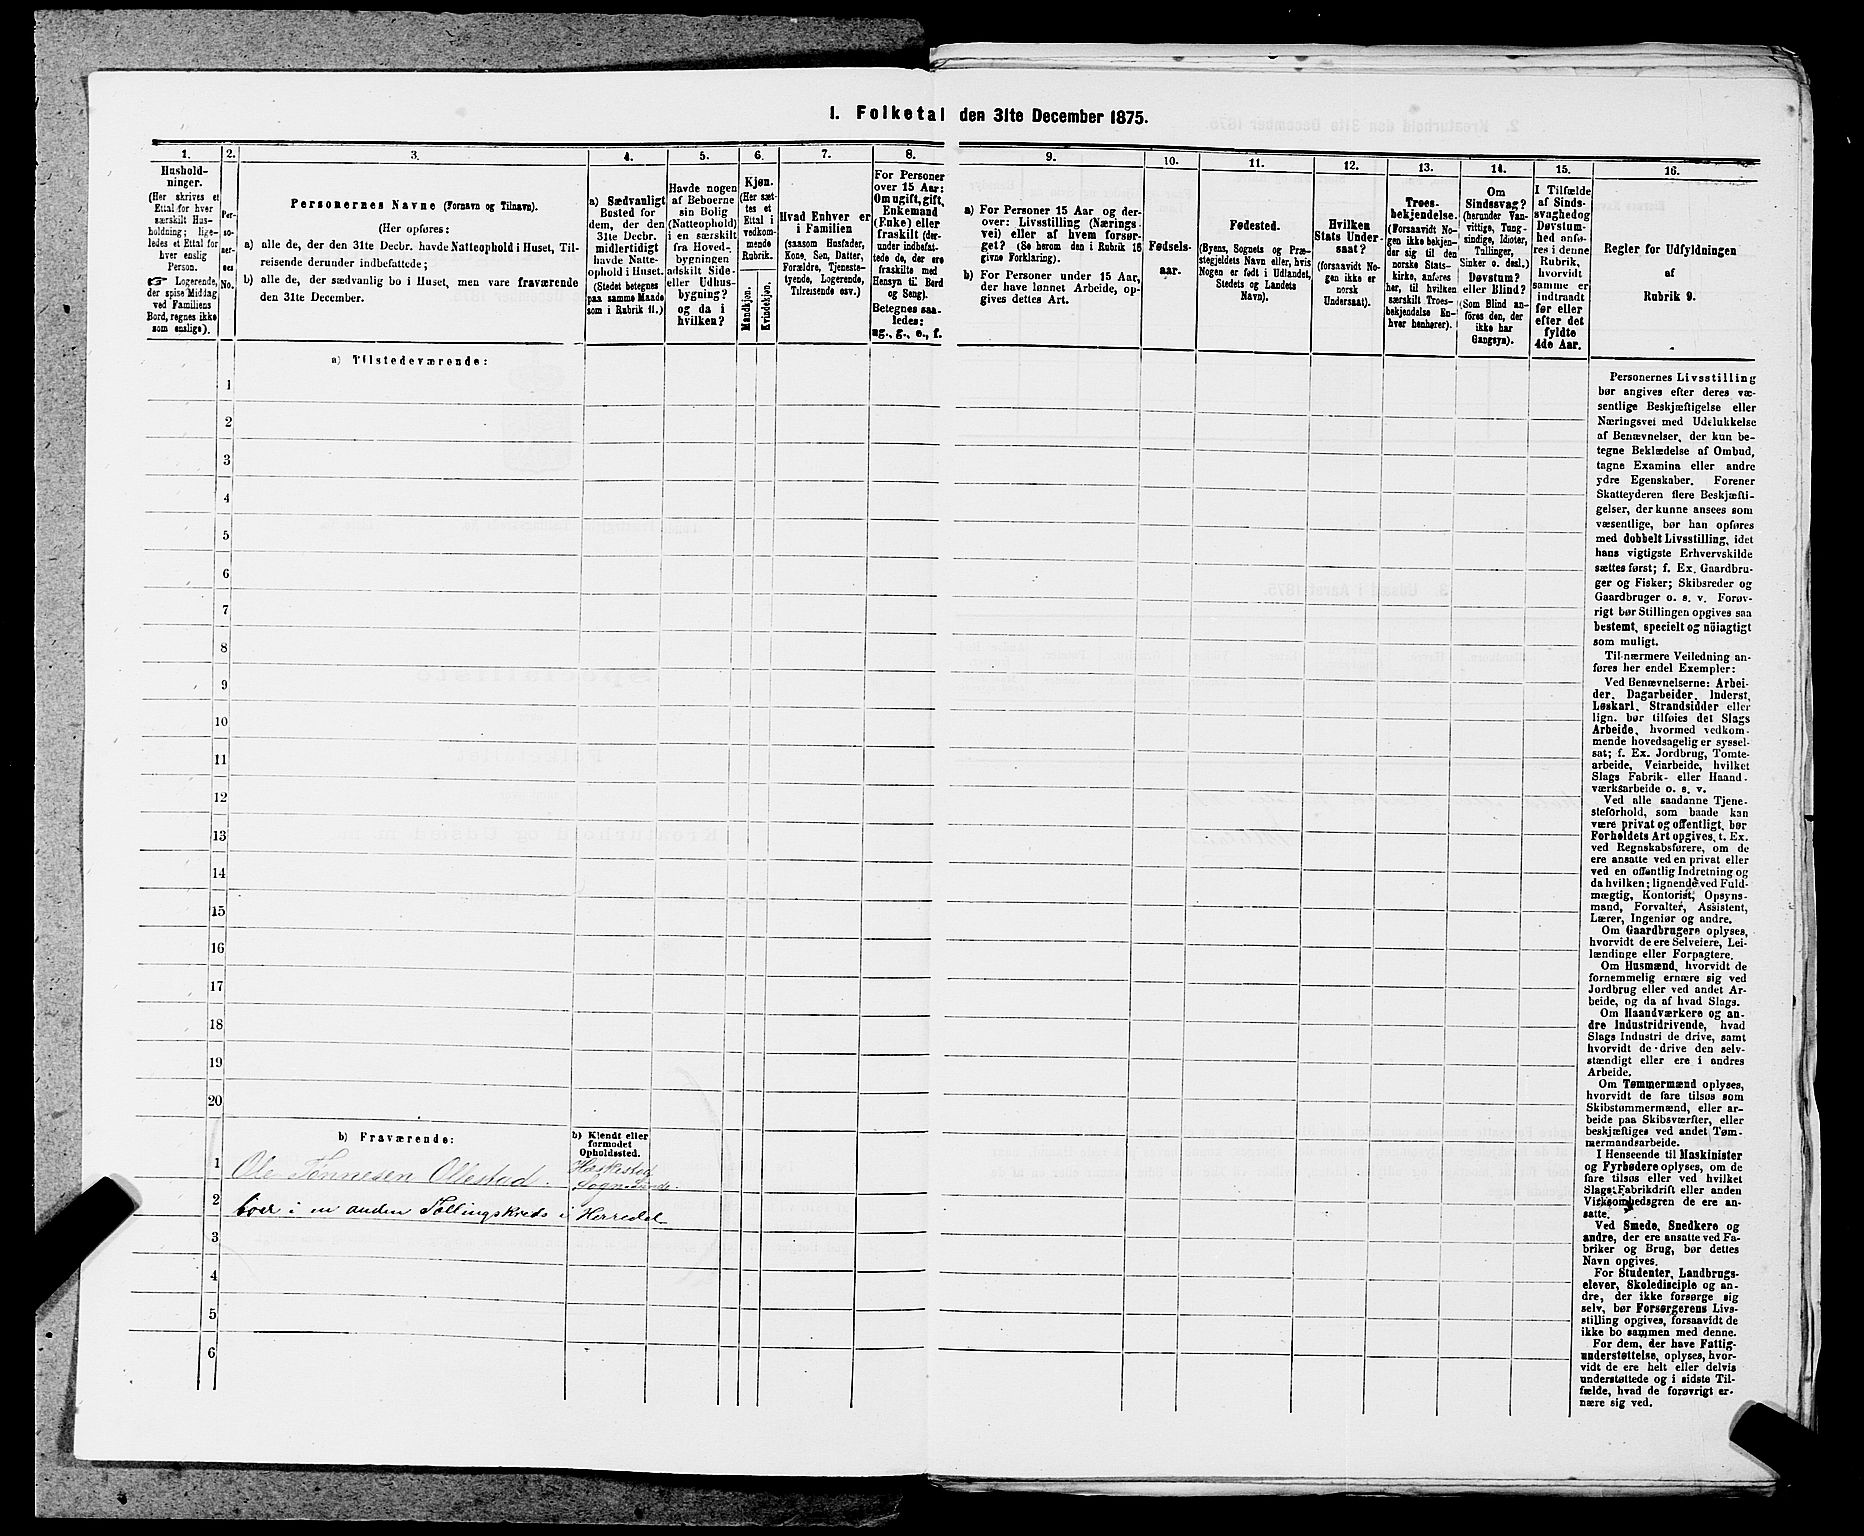 1. Folketal den 31te December 1875.
1.
2.
3.
4.
5.
6.
7.
8.
9.
10.
11.
12.
13.
14.
15.
16.
Hushold-
ninger.
(Her skrives et
Ettal for hver
særskilt Hus-
holdning; lige-
ledes et Ettal for
hver enslig
Person.
☞ Logerende,
der spise Middag
ved Familiens
Bord, regnes ikke
som enslige).
Per-
so-
ner-
nes
No.
Personernes Navne (Fornavn og Tilnavn).
(Her opføres:
a) alle de, der den 31te Decbr. havde Natteophold i Huset, Til-
reisende derunder indbefattede;
b) alle de, der sædvanlig bo i Huset, men vare fraværende
den 31te December.
a) Sædvanligt
Bosted for
dem, der den
31te Decbr.
midlertidigt
havde Natte-
ophold i Huset.
(Stedet betegnes
paa samme Maade
som i Rubrik 11.)
Havde nogen
af Beboerne
sin Bolig
(Natteophold)
i en særskilt
fra Hoved-
bygningen
adskilt Side-
eller Udhus-
bygning?
og da i
hvilken?
Kjøn.
(Her sæt-
tes et
Ettal i
vedkom-
mende
Rubrik.
Mandkjøn.
Kvindekjøn.
Hvad Enhver er
i Familien
(saasom Husfader,
Kone, Søn, Datter,
Forældre, Tjeneste-
tyende, Logerende,
Tilreisende osv.)
For Personer
over 15 Aar:
Om ugift, gift,
Enkemand
(Enke) eller
fraskilt (der-
under indbefat-
tede de, der ere
fraskilte med
Hensyn til Bord
og Seng).
Betegnes saa-
ledes:
ug., g., e., f.
a) For Personer 15 Aar og der-
over: Livsstilling (Nærings-
vei) eller af hvem forsør-
get? (Se herom den i Rubrik 16
givne Forklaring).
b) For Personer under 15 Aar,
der have lønnet Arbeide, op-
gives dettes Art.
Fødsels-
aar.
Fødested.
(Byens, Sognets og Præ-
stegjeldets Navn eller, hvis
Nogen er født i Udlandet,
Stedets og Landets
Navn).
Hvilken
Stats Under-
saat?
(forsaavidt No-
gen ikke er
norsk
Undersaat).
Troes-
bekjendelse.
(Forsaavidt No-
gen ikke bekjen-
der sig til den
norske Stats-
kirke, anføres
her, til hvilken
særskilt Troes-
bekjendelse En-
hver henhører).
Om
Sindssvag?
(herunder Van-
vittige, Tung-
sindige, Idioter,
Tullinger,
Sinker o. desl.)
Døvstum?
eller Blind?
(Som Blind an-
føres den, der
ikke har
Gangsyn).
I Tilfælde
af Sinds-
svaghed og
Døvstum-
hed anfø-
res i denne
Rubrik,
hvorvidt
samme er
indtraadt
før eller
efter det
fyldte
4de Aar.
Regler for Udfyldningen
af
Rubrik 9.
a) Tilstedeværende:
1
2
3
4
5
6
7
8
9
10
11
12
13
14
15
16
17
18
19
20
b) Fraværende:
b) Kjendt eller
formodet
Opholdssted.
1 Ole Tønnesen Ollestad. Haskestad
Sogn Lunde.
2 boer i en anden Tællingskreds i Herredet
3
4
5
6
Personernes Livsstilling
bør angives efter deres væ-
sentlige Beskjæftigelse eller
Næringsvei med Udelukkelse
af Benævnelser, der kun be-
tegne Beklædelse af Ombud,
tagne Examina eller andre
ydre Egenskaber. Forener
Skatteyderen flere Beskjæfti-
gelser, der kunne ansees som
væsentlige, bør han opføres
med dobbelt Livsstilling, idet
hans vigtigste Erhvervskilde
sættes først; f. Ex. Gaardbru-
ger og Fisker; Skibsreder og
Gaardbruger o. s. v. Forøv-
rigt bør Stillingen opgives saa
bestemt, specielt og nöiagtigt
som muligt.
Til nærmere Veiledning an-
føres her endel Exempler:
Ved Benævnelserne: Arbei-
der, Dagarbeider, Inderst,
Løskarl, Strandsidder eller
lign. bør tilføies det Slags
Arbeide, hvormed vedkom-
mende hovedsagelig er syssel-
sat; f. Ex. Jordbrug, Tomte-
arbeide, Veiarbeide, hvilket
Slags Fabrik- eller Haand-
værksarbeide o. s. v.
Ved alle saadanne Tjene-
steforhold, som baade kan
være privat og offentligt, bør
Forholdets Art opgives, t. Ex.
ved Regnskabsførere, om de
ere ansatte ved en privat eller
ved en offentlig Indretning og
da hvilken; lignende ved Fuld-
mægtig, Kontorist, Opsyns-
mand, Forvalter, Assistent,
Lærer, Ingeniør og andre.
Om Gaardbrugere oplyses,
hvorvidt de ere Selveiere, Lei-
lændinge eller Forpagtere.
Om Husmænd, hvorvidt de
fornemmelig ernære sig ved
Jordbrug eller ved andet Ar-
beide, og da af hvad Slags.
Om Haandværkere og an-
dre Industridrivende, hvad
Slags Industri de drive, samt
hvorvidt de drive den selv-
stændigt eller ere i andres
Arbeide.
Om Tømmermænd oplyses,
hvorvidt de fare tilsøs som
Skibstømmermænd, eller ar-
beide paa Skibsværfter, eller
beskjæftiges ved andet Tøm-
mermandsarbeide.
I Henseende til Maskinister
og Fyrbødere oplyses, om de
fare tilsøs eller ved hvilket
Slags Fabrikdrift eller anden
Virksomhedsgren de ere an-
satte.
Ved Smede, Snedkere og
andre, der ere ansatte ved Fa-
briker og Brug, bør dettes
Navn opgives.
For Studenter, Landbrugs-
elever, Skoledisciple og an-
dre, der ikke forsørge sig
selv, bør Forsørgerens Livs-
stilling opgives, forsaavidt de
ikke bo sammen med denne.
For dem, der have Fattig-
understøttelse, oplyses, hvor-
vidt de ere helt eller delvis
understøttede og i sidste Til-
fælde, hvad de forøvrigt er-
nære sig ved.